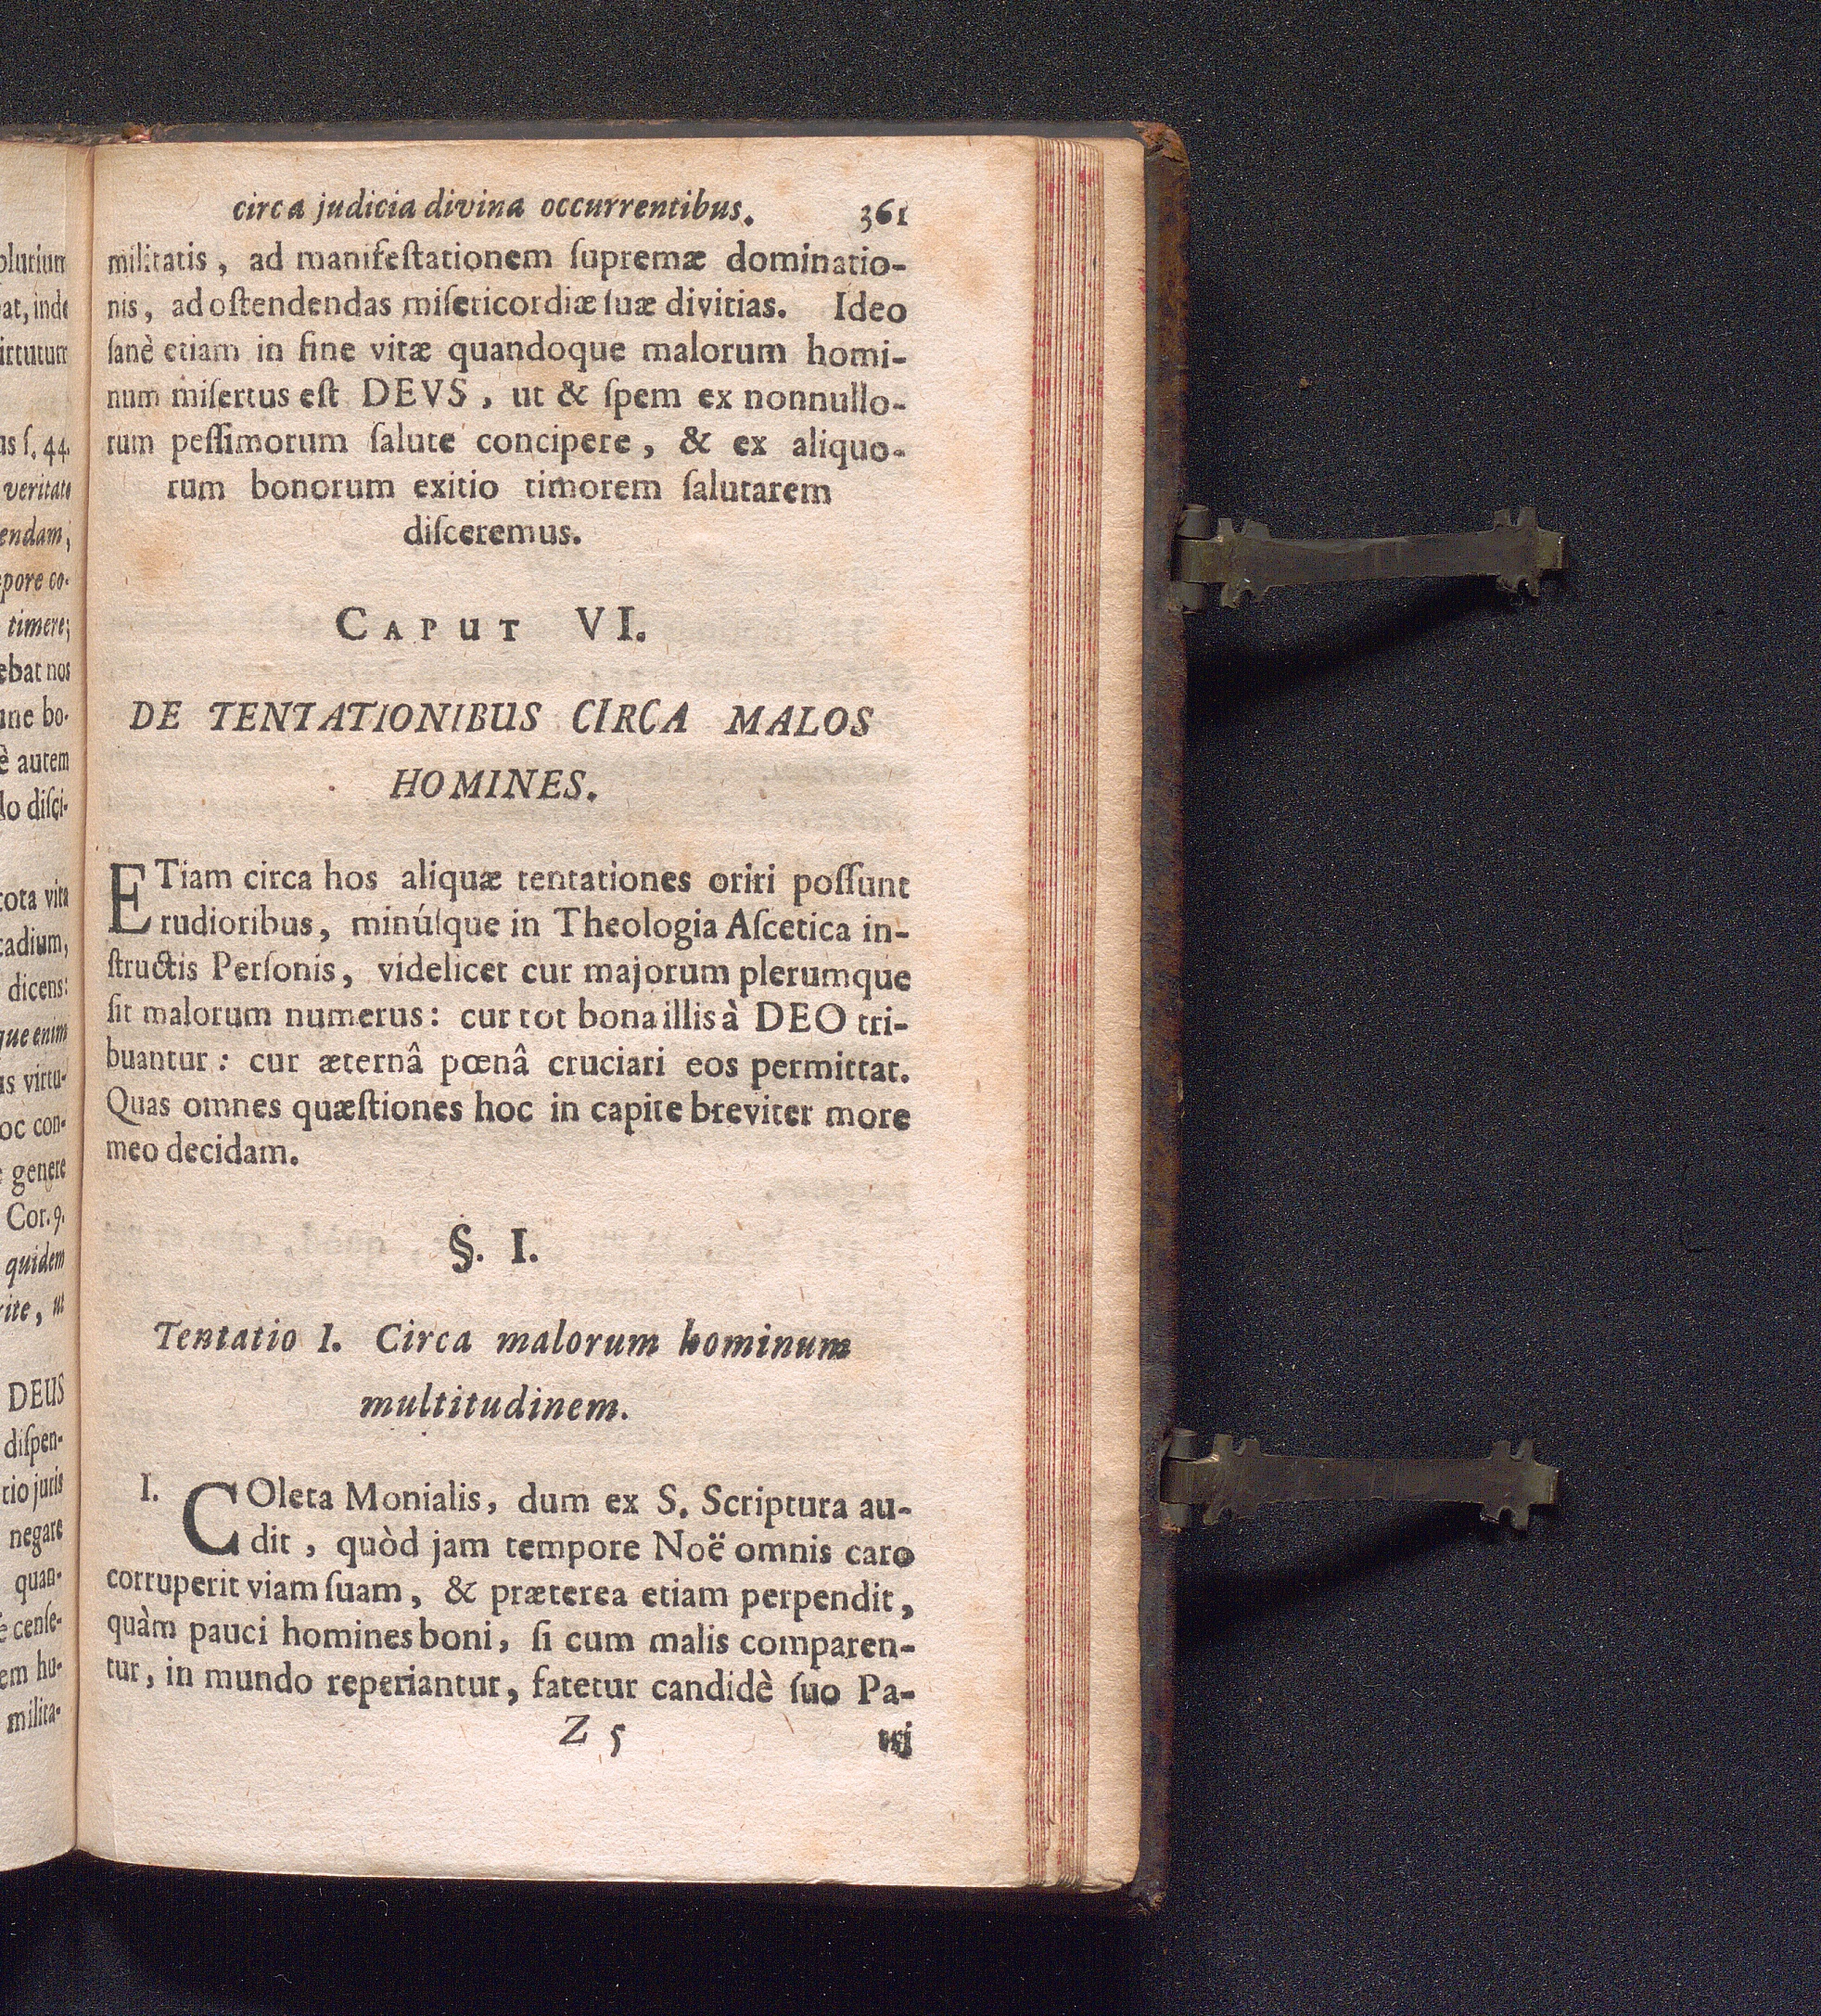 circa judicia divina occurrentibus. 361
militatis, ad manifeſtationem ſupremæ dominatio-
nis, ad oſtendendas miſericordiæ ſuæ divitias. Ideo
ſanè etiam in fine vitæ quandoque malorum homi-
num miſertus eſt DEVS, ut & ſpem ex nonnullo-
rum peſſimorum ſalute concipere, & ex aliquo-
rum bonorum exitio timorem ſalutarem
diſceremus.
CAPUT VI.
DE TENTATIONIBUS CIRCA MALOS
HOMINES.
ETiam circa hos aliquæ tentationes oriri poſſunt
rudioribus, minúſque in Theologia Aſcetica in-
ſtructis Perſonis, videlicet cur majorum plerumque
ſit malorum numerus: cur tot bona illis à DEO tri-
buantur: cur æternâ pœnâ cruciari eos permittat.
Quas omnes quæſtiones hoc in capite breviter more
meo decidam.
§. I.
Tentatio I. Circa malorum hominum
multitudinem.
I. COleta Monialis, dum ex S. Scriptura au-
dit, quòd jam tempore Noë omnis caro
corruperit viam ſuam, & præterea etiam perpendit,
quàm pauci homines boni, ſi cum malis comparen-
tur, in mundo reperiantur, fatetur candidè ſuo Pa-
Z 5 trj
at, inde
us ſ. 44.
veritate
endam,
pore co-
timere;
ebat nos
une bo-
è autem
lo diſci-
tota vita
tadium,
dicens:
que enim
us virtu-
oc con-
genere
Cor. 9.
quidem
rite, ut
DEUS
diſpen-
tio juris
negare
quan-
è cenſe-
em hu-
milita-